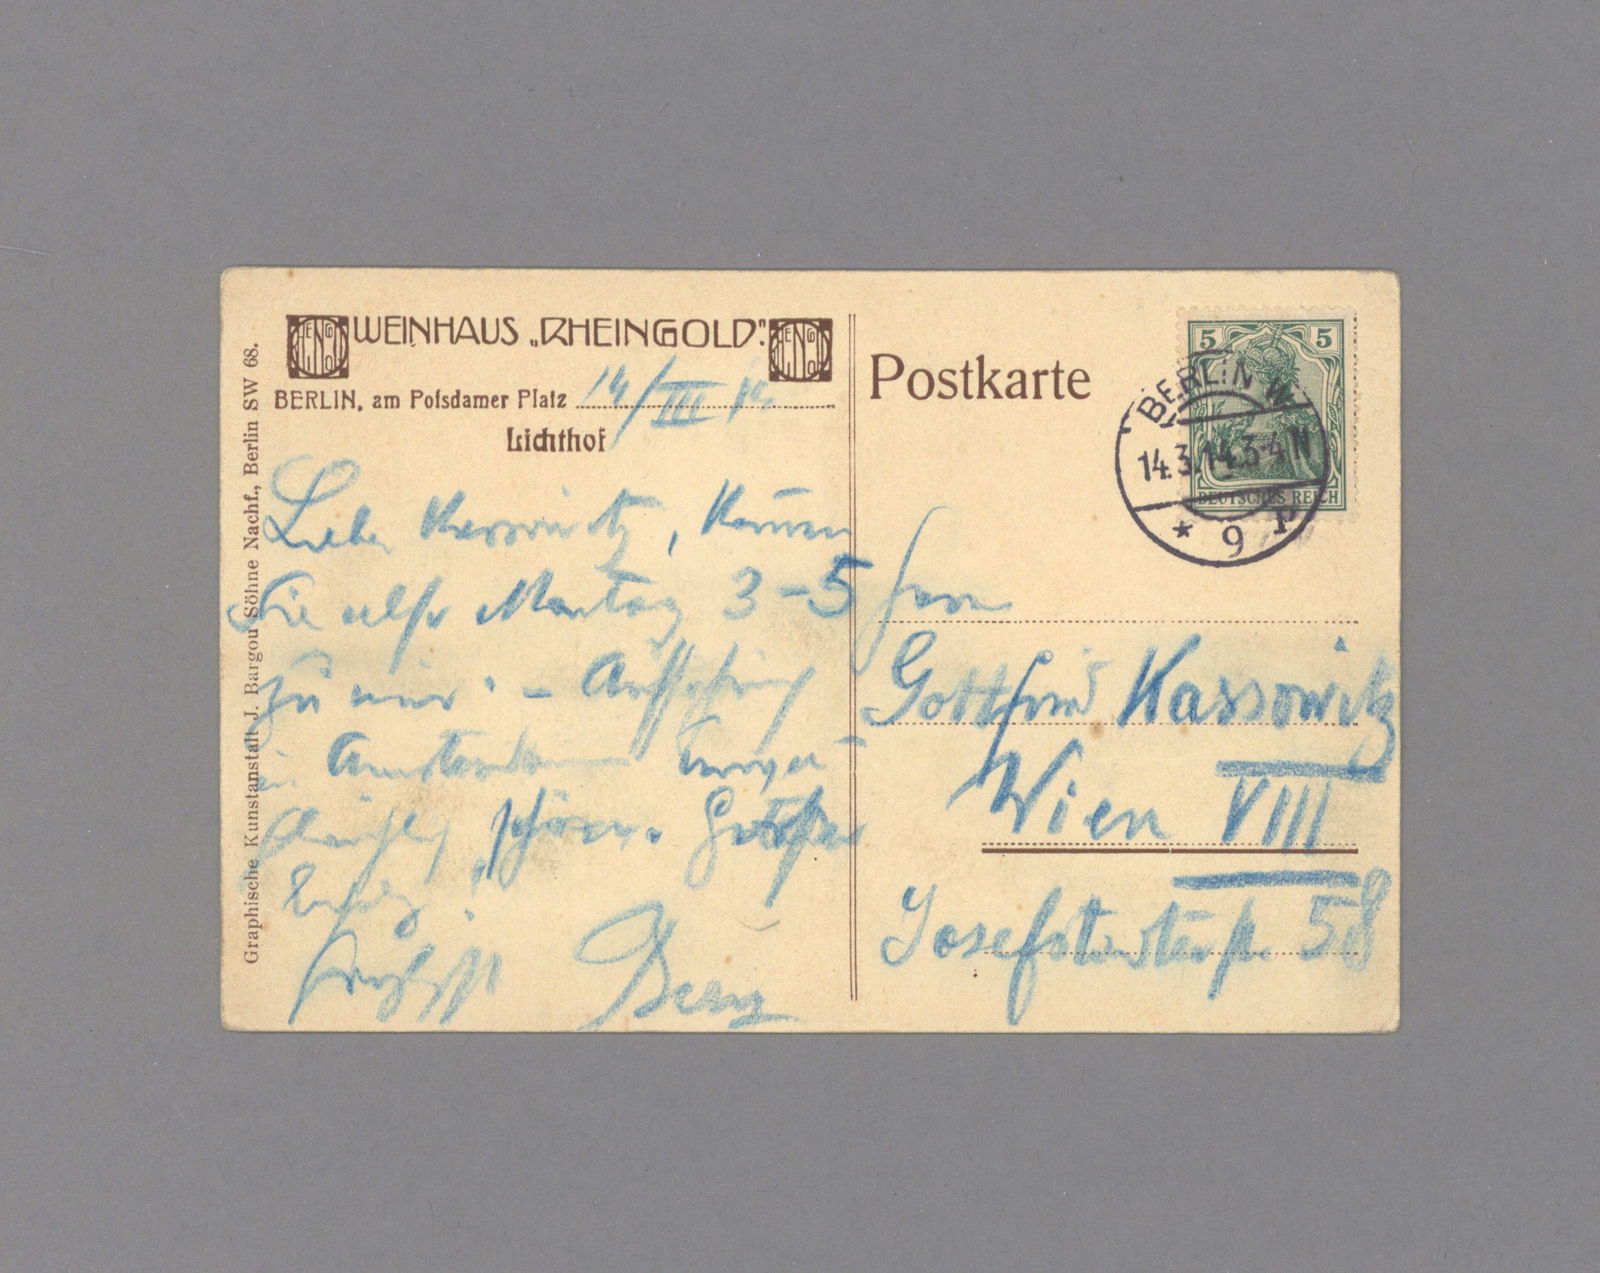 WEINHAUS „RHEINGOLD".
BERLIN, am Potsdamer Platz 14/III 14
Lichthof
Lieber Kassowitz, Kommen
Sie also Montag 3-5
zu mir. - Aufführung
in Amsterdam
schön. Grüße
Berg
Graphische Kunstanstalt J. Bargou Söhne Nachf., Berlin SW 68.
Postkarte
5 5
DEUTSCHES REICH
BERLIN W
14.3.14.3-4 N
* 9 P
Herrn
Gottfried Kassowitz
Wien VIII
Josefstädterstr. 58